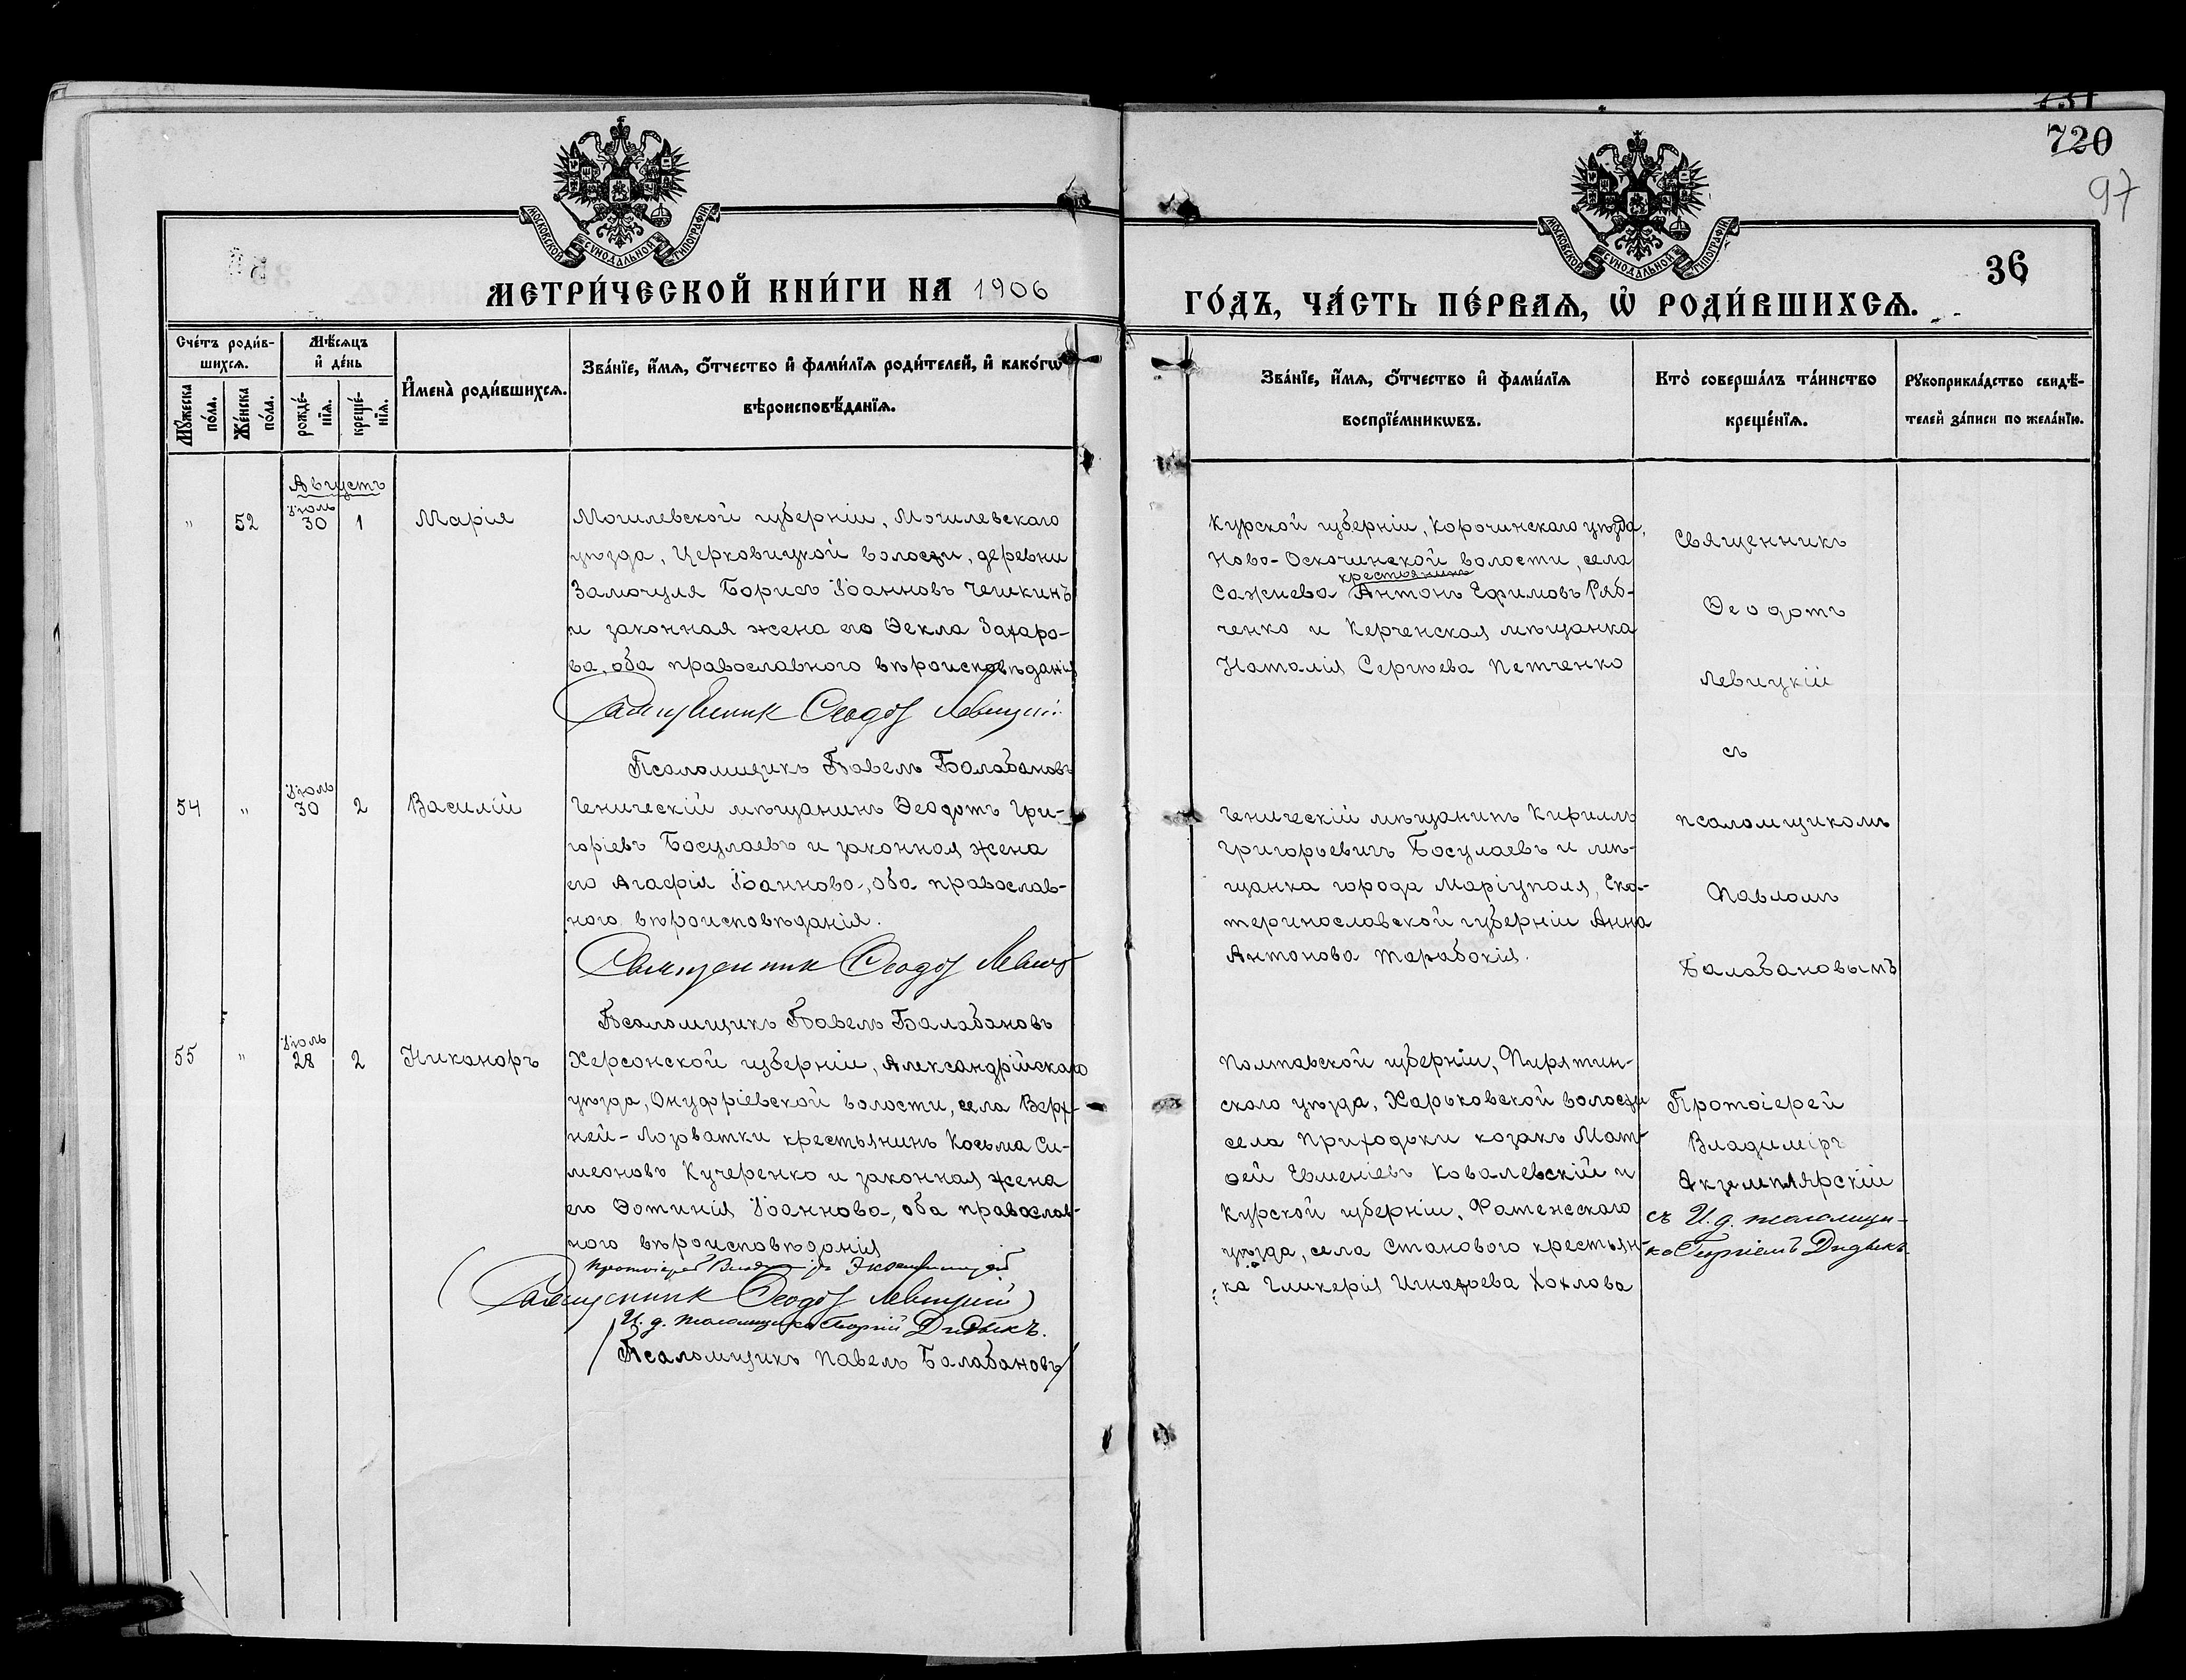 720
97
МОСКОВСКОЙ СѴНОДАЛЬНОЙ ТИПОГРАФІИ
МОСКОВСКОЙ СѴНОДАЛЬНОЙ ТИПОГРАФІИ
36
МЕТРИ́ЧЕСКОЙ КНИ́ГИ НА 1906
ГО́ДЪ, ЧА́СТЬ ПЕ́РВАѦ, Ѡ҆ РОДИ́ВШИХСѦ.
Сче́тъ роди́в-
шихсѧ.
Мꙋ́жеска
по́ла.
Же́нска
по́ла.
Мѣ́сяцъ
и҆ де́нь
рожде́-
нїѧ.
креще́-
нїѧ.
И҆мена̀ роди́вшихсѧ.
Зва́нїе, и҆́мѧ, ѻ҆́тчество и҆ фами́лїѧ роди́телей, и҆ како́гѡ
вѣроисповѣ́данїѧ.
Зва́нїе, и҆́мѧ, ѻ҆́тчество и҆ фами́лїѧ
воспрїе́мникѡвъ.
Кто̀ соверша́лъ та́инство
креще́нїѧ.
Рꙋкоприкла́дство свидѣ́-
телей за́писи по жела́нїю.
Августъ
" 52 Іюль 30 1 Марія
Могилевской губерніи, Могилевскаго
уѣзда, Церковицкой волости, деревни
Замочуля Борисъ Іоанновъ Чешкинъ
и законная жена его Ѳекла Захаро-
ва, оба православного вѣроисповѣданія
Священник Феодот Левицкій
Псаломщикъ Павелъ Балабановъ
Курской губерніи, Корочинскаго уѣзда,
Ново-Оскочинской волости, села
крестьянинъ
Сажнева Антонъ Ефимовъ Ряб-
ченко и Керченская мѣщанка
Наталія Сергѣева Петченко
Священникъ
Ѳеодотъ
Левицкій
съ
псаломщикомъ
Павломъ
Балабановымъ
54 " Іюль 30 2 Василій
Геническій мѣщанинъ Ѳеодотъ Гри-
горіевъ Босулаевъ и законная жена
его Агафія Іоаннова, оба православ-
ного вѣроисповѣданія.
Священник Феодот
Псаломщикъ Павелъ Балабановъ
Геническій мѣщанинъ Кириллъ
Григорьевичъ Босулаевъ и мѣ-
щанка города Маріуполя, Ека-
теринославской губерніи Анна
Антонова Тарабокія.
55 " Іюль 28 2 Никаноръ
Херсонской губерніи, Александрійскаго
уѣзда, Онуфріевской волости, села Верх-
ней-Лозоватки крестьянинъ Косьма Си-
меоновъ Кучеренко и законная жена
его Фотинія Іоаннова, оба православ-
ного вѣроисповѣданія
Протоіерей
(Священник Феодот Левицкій)
И. д. псаломщика Георгій Дидыкъ.
(Псаломщикъ Павелъ Балабановъ)
Полтавской губерніи, Пирятин-
скаго уѣзда, Харьковской волости
села Приходьки козакъ Мат-
ѳей Евменіевъ Ковалевскій и
Курской губерніи, Фатежскаго
уѣзда, села Станового крестьян-
ка Гликерія Игнатьева Хохлова
Протоіерей
Владиміръ
Экземплярскій
съ И. д. псаломщи-
ка Георгіемъ Дидыкъ